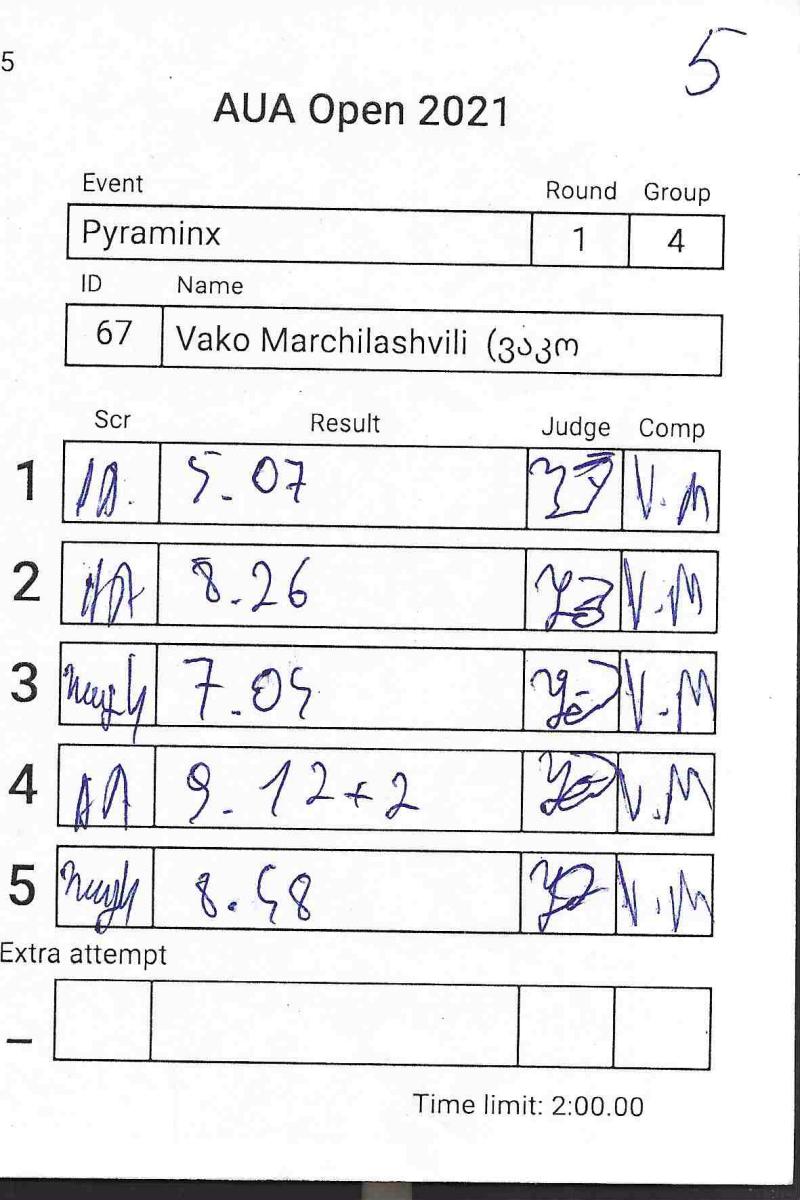 5
5
AUA Open 2021
Event Round Group
Pyraminx 1 4
ID Name
67 Vako Marchilashvili (ვაკო
Scr Result Judge Comp
1 5.07 V.M
2 8.26 V.M
3 7.05 V.M
4 9.12+2 V.M
5 8.58 V.M
Extra attempt
–
Time limit: 2:00.00